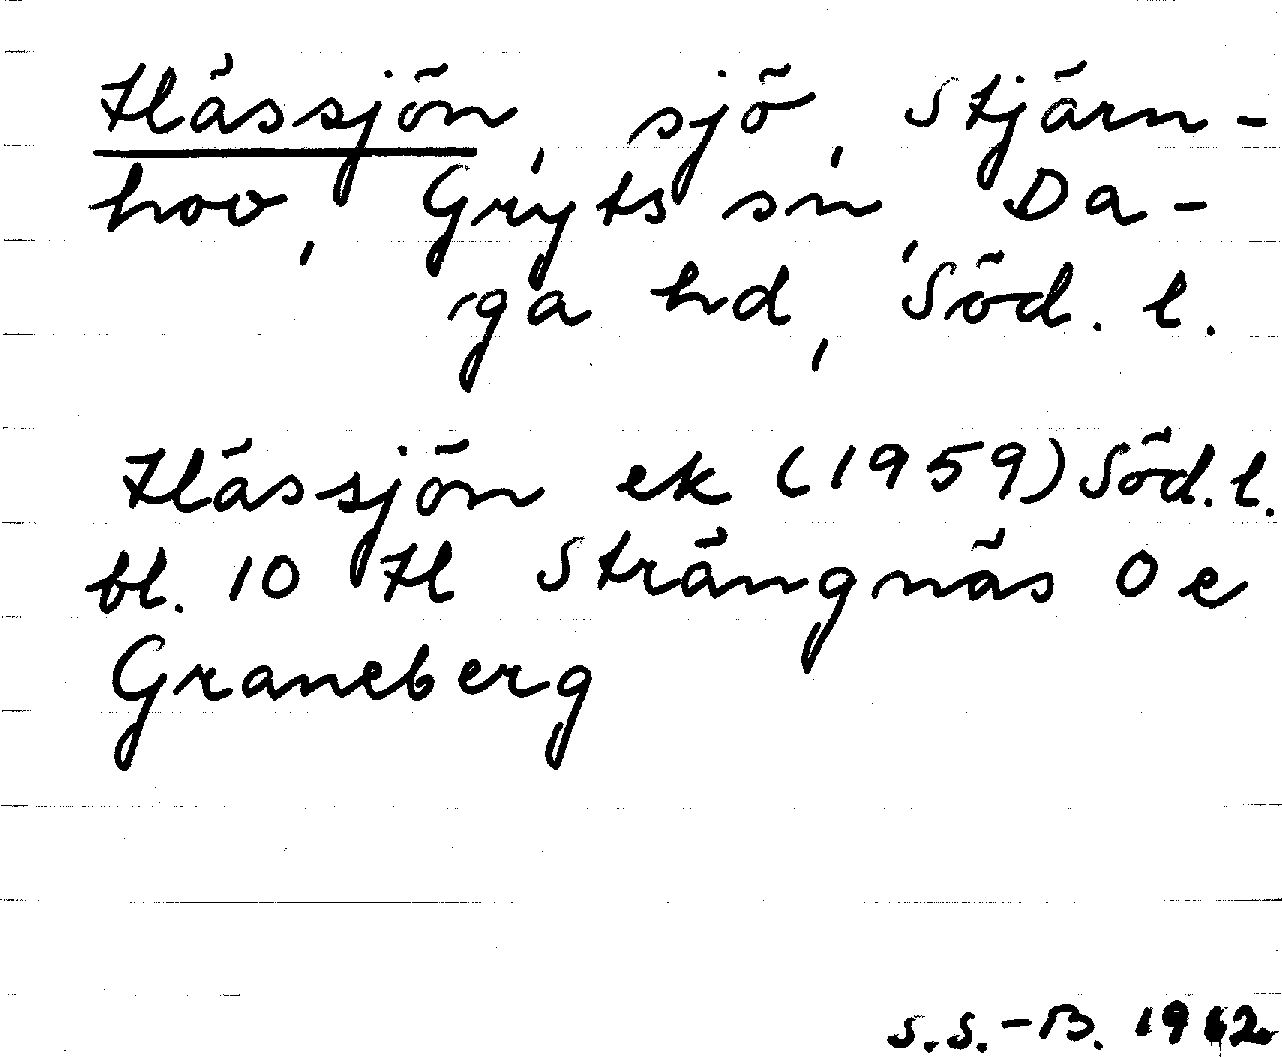 Hässjön, sjö, Stjärn-
hov, Gryts sn, Da-
ga hd, Söd. l.
Hässjön ek (1959) Söd. l.
bl. 10 H Strängnäs Oe
Graneberg
S.S.-B. 1962